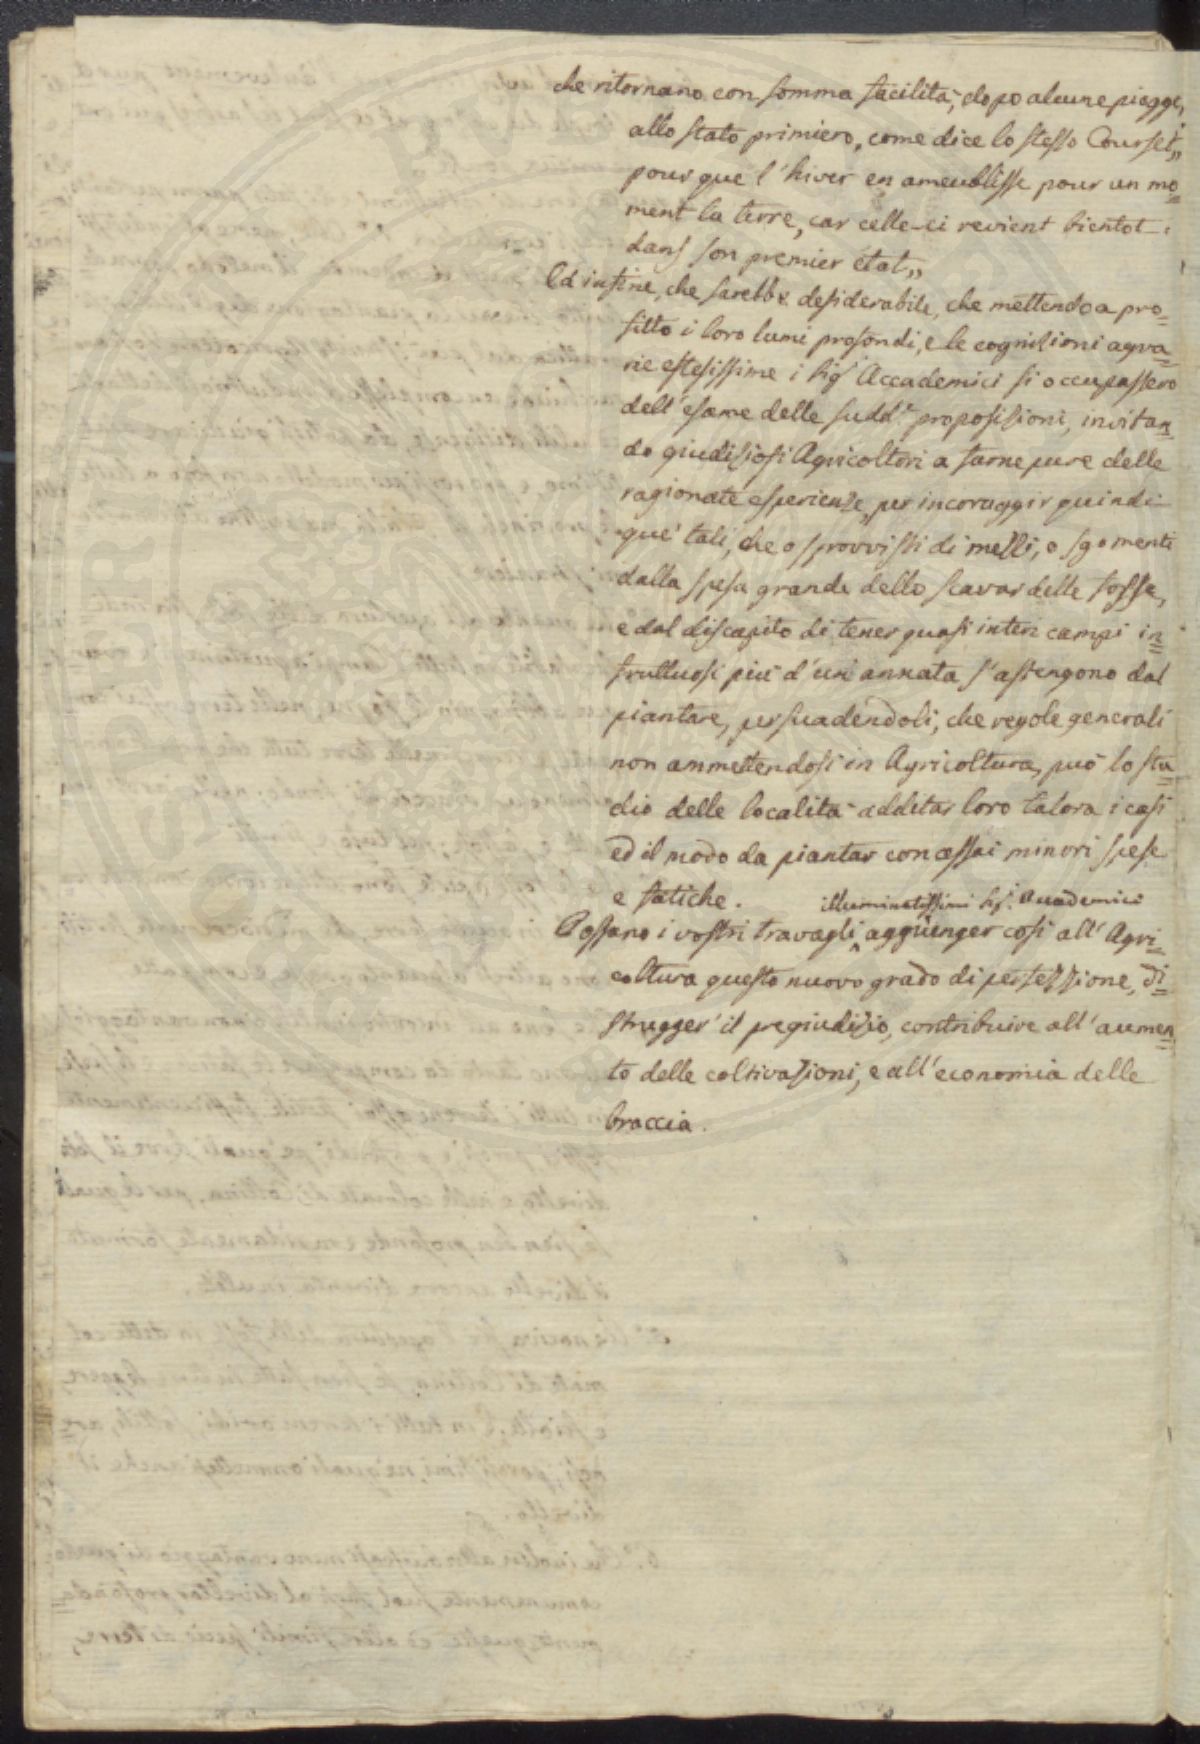 che ritornano con somma facilità, dopo alcune piogge,
allo stato primiero, come dice lo stesso Courset„
pour que l'hiver en ameublisse pour un mo=
ment la terre, car celle-ci revient bientot
dans son premier état„
Ed infine, che sarebbe desiderabile, che mettendo a pro=
fitto i loro lumi profondi, e le cognizioni agra=
rie estesissime i Sig.i Accademici si occupassero
dell'esame delle sudd.e proposizioni, invitan=
do giudiziosi Agricoltori a farne pure delle
ragionate esperienze, per incoraggir quindi
que' tali, che o sprovvisti di mezzi, o sgomenti
dalla spesa grande dello scavar delle fosse,
e dal discapito di tener quasi interi campi in=
fruttuosi più d'un annata s'astengono dal
piantare, persuadendoli, che regole generali
non ammettendosi in Agricoltura, può lo stu=
dio delle località additar loro talora i casi
ed il modo da piantar con assai minori spese
e fatiche.
illuminatissimi Sig.i Accademici
Possano i vostri travagli ^ aggiunger così all'Agri=
coltura questo nuovo grado di perfezzione, di=
strugger il pregiudizio, contribuire all'aumen=
to delle coltivazioni, e all'economia delle
braccia.